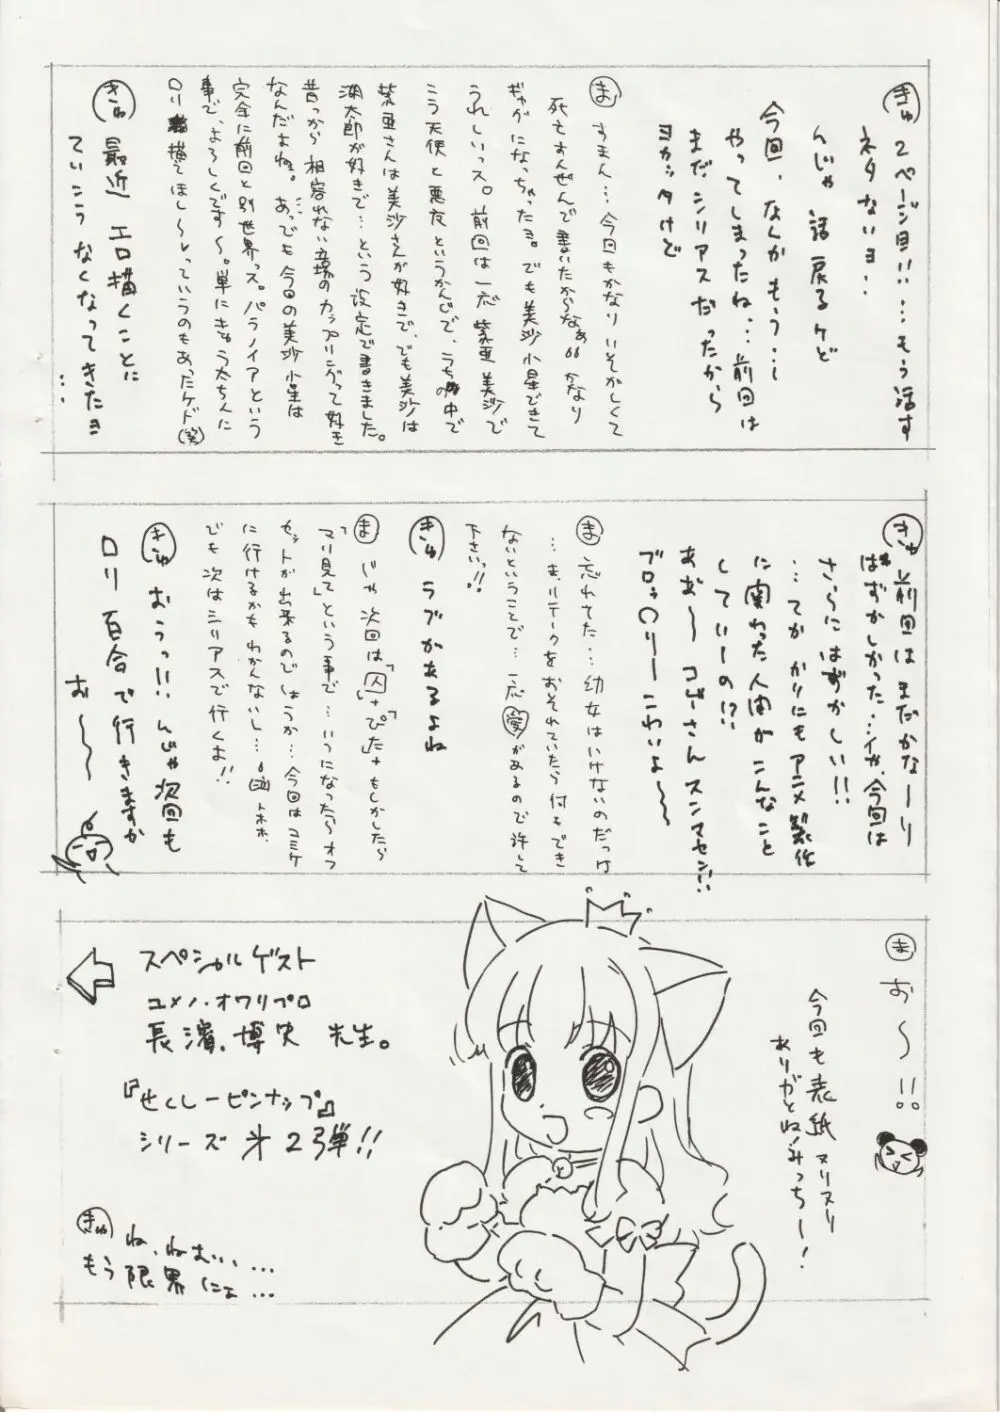 きゅ 2ページ目!!…もう話す
ネタないヨ…
んじゃ 話 戻るケど
今回、なんか もう…
やってしまったね…前回は
まだシリアスだったから
ヨカッタけど
ま すまん…今回もかなりいそがしくて
死にそうんで書いたからなぁ かなり
ギャグになっちゃったヨ。でも美沙小星できて
うれしいっス。前回は一応 紫亜美沙で
こう天使と悪友というかんじで、うちの中で
紫亜さんは美沙さんが好きで、でも美沙は
湖太郎が好きで…という設定で書きました。
昔っから相容れない立場のカップリングって好き
なんだよねぇ。あっでも今回の美沙小星は
完全に前回と別世界っス。パラノイアという
事で、よろしくです〜。単にきゅう太ちんに
ロリ描いてほし〜っていうのもあったケド(笑)
きゅ 最近 エロ描くことに
ていこうなくなってきたヨ
…
きゅ 前回はまだかなーり
はずかしかった…イヤ、今回は
さらにはずかしい!!
…てか かりにもアニメ製作
に関わった人間がこんなこと
していーの!?
ああ〜〜 コゲさん スンマセン!!
ブロッ〇リーこわいよ〜〜
ま 忘れてた…幼女はいけないのだっけ
…ま、リテークをおそれていたら何もでき
ないということで…一応愛があるので許して
下さいっ!!
きゅ ラブがあるよね
ま じゃ 次回は「囚」+「ぴた」+もしかしたら
「マリ見て」という事で…いつになったらオフ
セットが出来るのでしょうか…今回はコミケ
に行けるかもわかんないし… トホホ
でも 次はシリアスで行くよ!!
きゅ おうっ!! んじゃ次回も
ロリ 百合で行きますか
お〜〜
ま お〜!!
今回も表紙ヌリヌリ
ありがとね!みっちー!
スペシャルゲスト
ユメノ・オワリプロ
長濱 博史 先生。
『せくしーピンナップ』
シリーズ 第2弾!!
きゅ ね、ねむい、…
もう 限界 にょ…